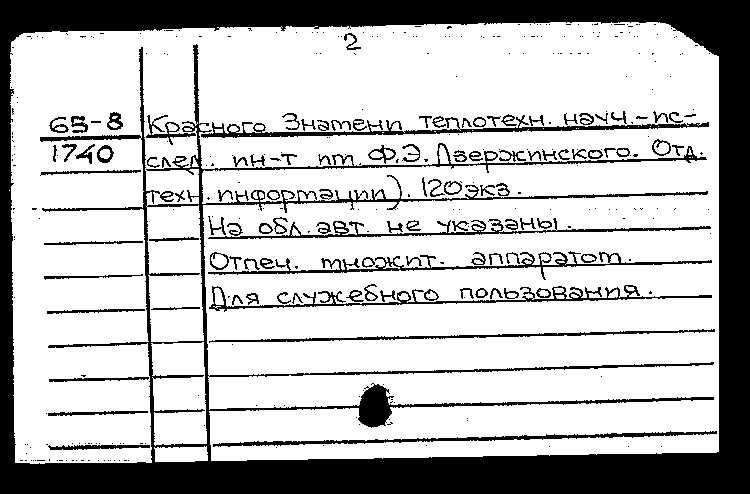 2
65-8 Красного Знамени теплотехн. науч.-ис-
1740 след. ин-т им. Ф.Э. Дзержинского. Отд.
техн. информации). 120 экз.
На обл. авт. не указаны.
Отпеч. множит. аппаратом.
Для служебного пользования.